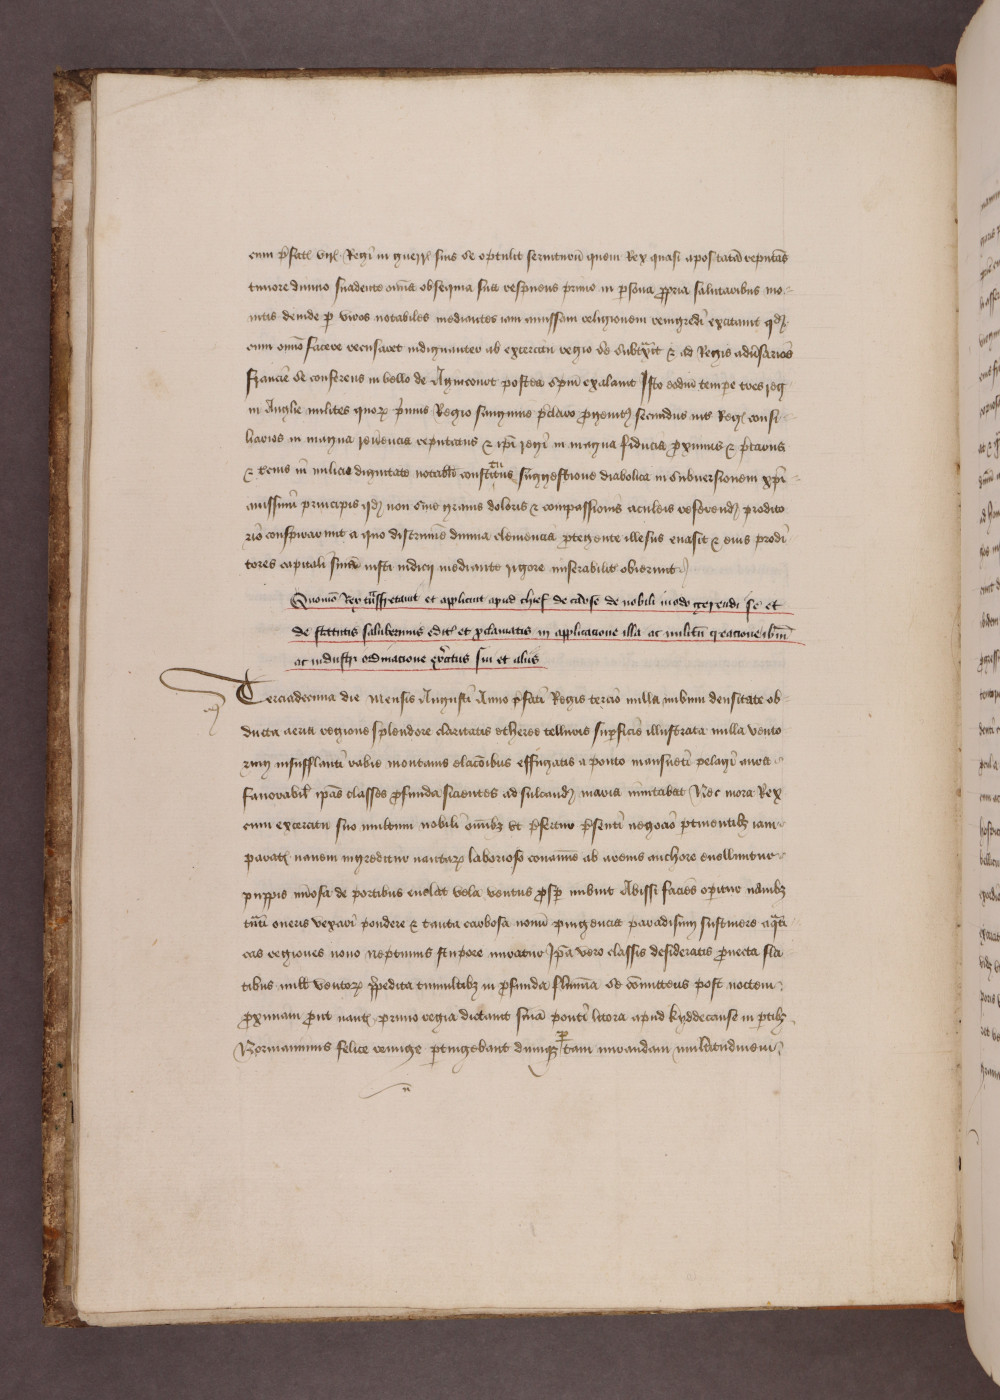 cum p̄fato viᵗ. Regi in guerris suis se optulit seruiturū quem Rex quasi apostatā reputās
timore diuino suadente omīa obsequia sua respuens primo in persona propria salutaribus mo-
nitis deinde per viros notabiles mediantes iam inuissam religionem reingredi excitauit qd
cum omīo facere recusaret indignanter ab excercitu regio se subtraxit & ad Regis aduersarios
Francie se conferens in bello de Agincourt postea spm̄ exalauit Isto eodem tempore tres
in Anglie milites quorum primus Regio sanguinis preclaro progenitus secundus inter Regis consi-
liarios in magna reuerencia reputatus & ipi regi in magna fiducia proximus & preclarus
& tercius in milicie dignitate notabilis constitutus suggestione diabolica in subuersionem xpi-
anissimi principis qd non sine grauis doloris & compassionis aculeis referendum prodito
rie conspirarunt a quo discrimine diuina clemencia protegente illesus euasit & eius prodi
tores capitali sentencia iusti iudicij mediante rigore miserabiliter obierunt
Quomodo Rex transfretauit et applicuit apud chief de cause de nobili modo gerendi se et
de statutis saluberrimis editis et proclamatis in applicacione illa ac militum creacione ibm̄
ac industri ordinacione exercitus sui et alijs
Terciadecima die mensis Augusti Anno prefati Regis tercio nulla nubium densitate ob-
ducta aeria regione splendore claritatis etheree telluris superficie illustrata nulla vento
rum insufflanti rabie montanis elacōibus effugatis a ponto mansueti pelagi aura
fauorabilis ipās classes profunda sicientes ad sulcandum maria inuitabat Nec mora Rex
cum excercitu suo multum nobili omnibus ut prefertur presenti negocio pertinentibus iam
paratis nauem ingreditur nautarum laborioso conamine ab arenis anchore euelluntur
puppis immosa de portibus euolat vela ventus prosper imbuit Abissi facies operitur nauibus
tanti oneris vexari pondere & tanta carbosa nouum pingencia paradisum sustinere aquati
cas regiones nouo neptunus stupore miratur Ipā vero classis desideratis prouecta fla
tibus nullis ventorum prepedita tumultibus in profunda flumina se committens post noctem
proximam prout nautis primo regia dictauit sentencia ponti litora apud kyddecause in partibus
Normannnis felice remige pertingebant dumque per tam mirandam multitudinem